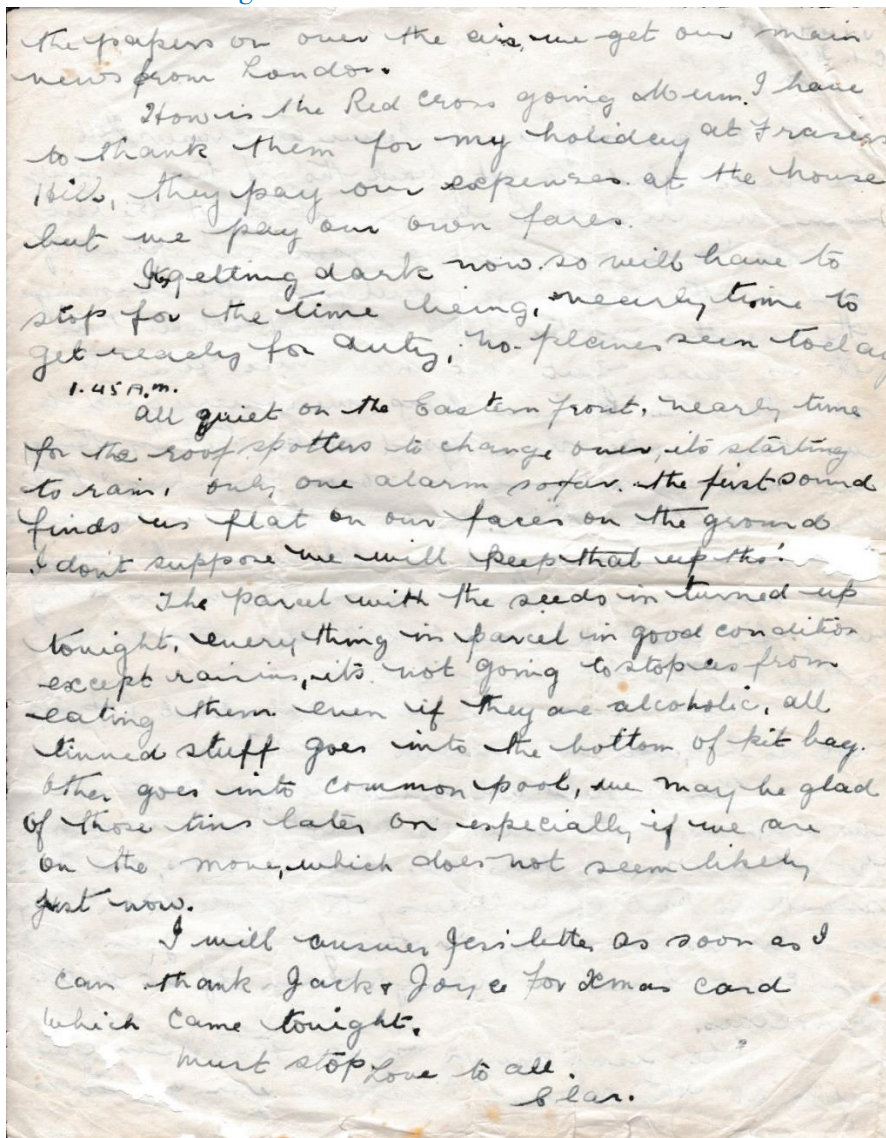 the papers or over the air, we get our main
news from London.
How is the Red Cross going Mum. I have
to thank them for my holiday at Frasers
Hill, they pay our expenses at the house
but we pay our own fares.
Its getting dark now so will have to
stop for the time being, nearly time to
get ready for duty, no planes seen today
1.45 A.m.
All quiet on the Eastern front, nearly time
for the roof spotters to change over, its starting
to rain, only one alarm so far. the first sound
finds us flat on our faces on the ground
I dont suppose we will keep that up tho'.
The parcel with the seeds in turned up
tonight, everything in parcel in good condition
except raisins, its not going to stop us from
eating them even if they are alcoholic, all
tinned stuff goes into the bottom of kit bag.
Other goes into common pool, we may be glad
of those tins later on especially if we are
on the move, which does not seem likely
just now.
I will answer letter as soon as I
can thank Jack & Joyce for Xmas card
which came tonight.
Must stop Love to all.